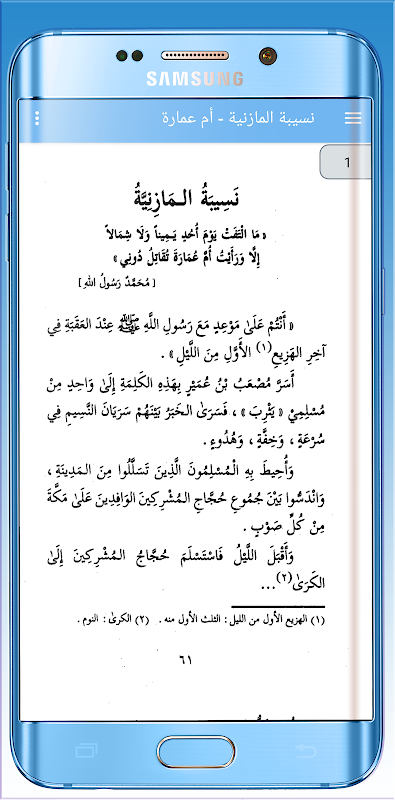 SAMSUNG
نسيبة المازنية - أم عمارة
1
نَسِيبَةُ الـمَازِنِيَّةُ
« مَا الْتَفَتُّ يَوْمَ أُحُدٍ يَـمِيناً وَلَا شِمَالاً
إِلَّا وَرَأَيْتُ أُمَّ عُمَارَةَ تُقَاتِلُ دُونِي »
[ مُحَمَّدٌ رَسُولُ اللهِ ]
« أَنْتُمْ عَلَىٰ مَوْعِدٍ مَعَ رَسُولِ اللَّهِ ﷺ عِنْدَ العَقَبَةِ فِي
آخِرِ الهَزِيعِ(١) الأَوَّلِ مِنَ اللَّيْلِ » .
أَسَرَّ مُصْعَبُ بْنُ عُمَيْرٍ بِهَذِهِ الكَلِمَةِ إِلَىٰ وَاحِدٍ مِنْ
مُسْلِمِيْ « يَثْرِبَ » ، فَسَرَىٰ الخَبَرُ بَيْنَهُمْ سَرَيَانَ النَّسِيمِ فِي
سُرْعَةٍ ، وَخِفَّةٍ ، وَهُدُوءٍ .
وَأُحِيطَ بِهِ الْمُسْلِمُونَ الَّذِينَ تَسَلَّلُوا مِنَ الـمَدِينَةِ ،
وَانْدَسُّوا بَيْنَ جُمُوعِ حُجَّاجِ الـمُشْرِكِينَ الوَافِدِينَ عَلَىٰ مَكَّةَ
مِنْ كُلِّ صَوْبٍ .
وَأَقْبَلَ اللَّيْلُ فَاسْتَسْلَمَ حُجَّاجُ الـمُشْرِكِينَ إِلَىٰ
الكَرَىٰ(٢)...
(١) الهزيع الأول من الليل : الثلث الأول منه . (٢) الكرىٰ : النوم .
٦١